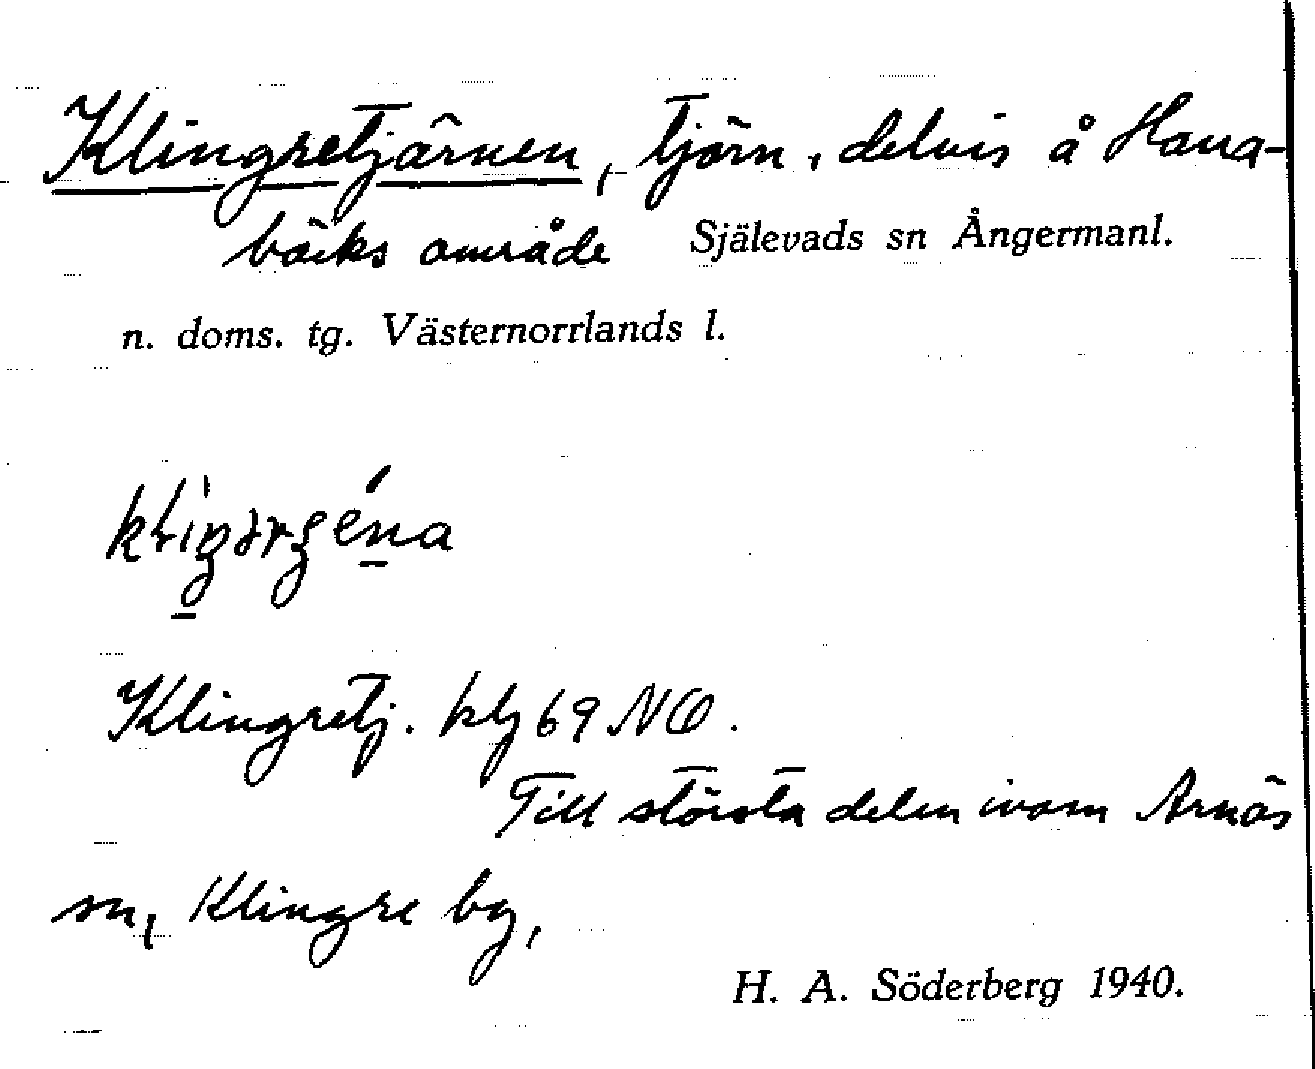 Klingretjärnen, tjärn, delvis å Hana-
bäcks område Själevads sn Ångermanl.
n. doms. tg. Västernorrlands l.
Klingretj. kbg 69 NO.
Till största delen inom Arnäs
sn, Klingre by,
H. A. Söderberg 1940.